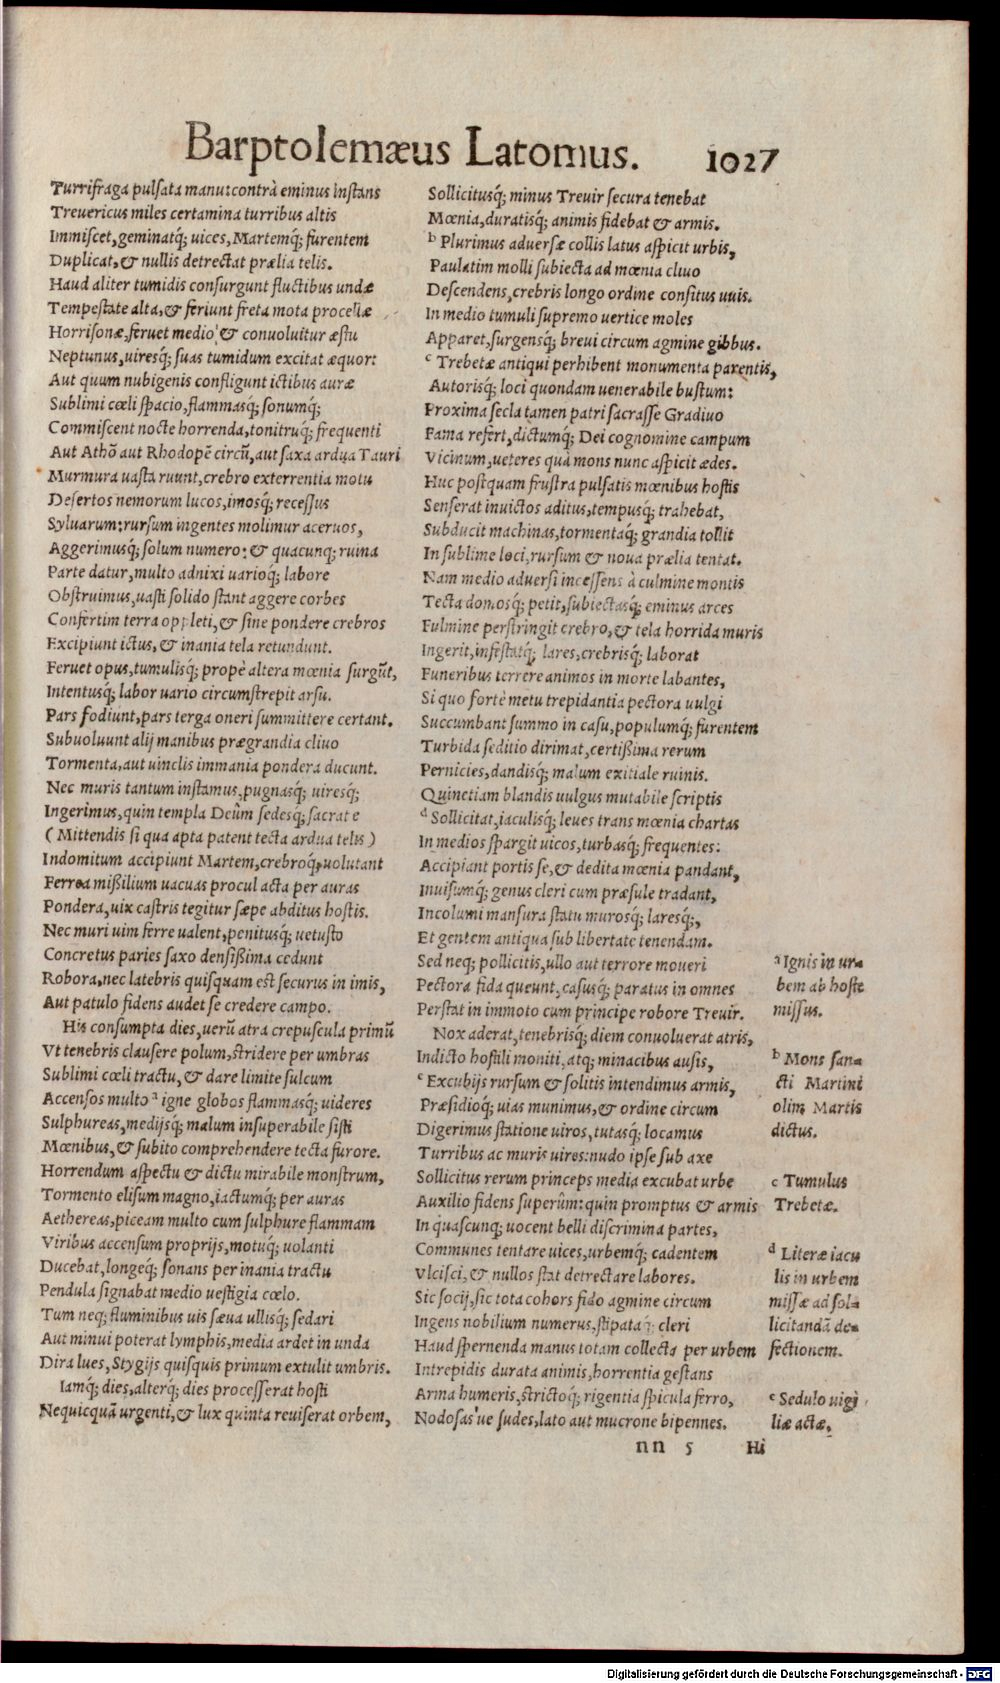 Barptolemæus Latomus. 1027
Turrifraga pulsata manu: contrà eminus instans
Treuericus miles certamina turribus altis
Immiscet, geminatq́; uices, Martemq́; furentem
Duplicat, & nullis detrectat prælia telis.
Haud aliter tumidis consurgunt fluctibus undæ
Tempestate alta, & feriunt freta mota procellæ
Horrisonæ, feruet medio & conuoluitur æstu
Neptunus, uiresq́; suas tumidum excitat æquor:
Aut quum nubigenis confligunt ictibus auræ
Sublimi cœli spacio, flammasq́; sonumq́;
Commiscent nocte horrenda, tonitruq́; frequenti
Aut Athō aut Rhodopē circū, aut saxa ardua Tauri
Murmura uasta ruunt, crebro exterrentia motu
Desertos nemorum lucos, imosq́; recessus
Syluarum: rursum ingentes molimur aceruos,
Aggerimusq́; solum numero: & quacunq; ruina
Parte datur, multo adnixi uarioq́; labore
Obstruimus, uasti solido stant aggere corbes
Confertim terra oppleti, & sine pondere crebros
Excipiunt ictus, & inania tela retundunt.
Feruet opus, tumulisq́; propè altera mœnia surgūt,
Intentusq́; labor uario circumstrepit arsu.
Pars fodiunt, pars terga oneri summittere certant.
Subuoluunt alij manibus prægrandia cliuo
Tormenta, aut uinclis immania pondera ducunt.
Nec muris tantum instamus, pugnasq́; uiresq́;
Ingerimus, quin templa Deûm sedesq́; sacrate
( Mittendis si qua apta patent tecta ardua telis )
Indomitum accipiunt Martem, crebroq́; uolutant
Ferrea mißilium uacuas procul acta per auras
Pondera, uix castris tegitur sæpe abditus hostis.
Nec muri uim ferre ualent, penitusq́; uetusto
Concretus paries saxo densißima cedunt
Robora, nec latebris quisquam est securus in imis,
Aut patulo fidens audet se credere campo.
His consumpta dies, uerū atra crepuscula primū
Vt tenebris clausere polum, stridere per umbras
Sublimi cœli tractu, & dare limite sulcum
Accensos multo a igne globos flammasq́; uideres
Sulphureas, medijsq́; malum insuperabile sisti
Mœnibus, & subito comprehendere tecta furore.
Horrendum aspectu & dictu mirabile monstrum,
Tormento elisum magno, iactumq́; per auras
Aethereas, piceam multo cum sulphure flammam
Viribus accensum proprijs, motuq́; uolanti
Ducebat, longeq́; sonans per inania tractu
Pendula signabat medio uestigia cœlo.
Tum neq; fluminibus uis sæua ullisq́; sedari
Aut minui poterat lymphis, media ardet in unda
Dira lues, Stygijs quisquis primum extulit umbris.
Iamq́; dies, alterq́; dies processerat hosti
Nequicquā urgenti, & lux quinta reuiserat orbem,
Sollicitusq́; minus Treuir secura tenebat
Mœnia, duratisq́; animis fidebat & armis.
b Plurimus aduersæ collis latus aspicit urbis,
Paulatim molli subiecta ad mœnia cliuo
Descendens, crebris longo ordine consitus uuis.
In medio tumuli supremo vertice moles
Apparet, surgensq́; breui circum agmine gibbus.
c Trebetæ antiqui perhibent monumenta parentis,
Autorisq́; loci quondam uenerabile bustum:
Proxima secla tamen patri sacrasse Gradiuo
Fama refert, dictumq́; Dei cognomine campum
Vicinum, ueteres quà mons nunc aspicit ædes.
Huc postquam frustra pulsatis mœnibus hostis
Senserat inuictos aditus, tempusq́; trahebat,
Subducit machinas, tormentaq́; grandia tollit
In sublime loci, rursum & noua prælia tentat.
Nam medio aduersi incessens à culmine montis
Tecta domosq́; petit, subiectasq́; eminus arces
Fulmine perstringit crebro, & tela horrida muris
Ingerit, infestatq́; lares, crebrisq́; laborat
Funeribus terrere animos in morte labantes,
Si quo fortè metu trepidantia pectora uulgi
Succumbant summo in casu, populumq́; furentem
Turbida seditio dirimat, certißima rerum
Pernicies, dandisq́; malum exitiale ruinis.
Quinetiam blandis uulgus mutabile scriptis
d Sollicitat, iaculisq́; leues trans mœnia chartas
In medios spargit uicos, turbasq́; frequentes:
Accipiant portis se, & dedita mœnia pandant,
Inuisumq́; genus cleri cum præsule tradant,
Incolumi mansura statu murosq́; laresq́;,
Et gentem antiqua sub libertate tenendam.
Sed neq; pollicitis, ullo aut terrore moueri
Pectora fida queunt, casusq́; paratus in omnes
Perstat in immoto cum principe robore Treuir.
Nox aderat, tenebrisq́; diem conuoluerat atris,
Indicto hostili moniti, atq; minacibus ausis,
e Excubijs rursum & solitis intendimus armis,
Præsidioq́; uias munimus, & ordine circum
Digerimus statione uiros, tutasq́; locamus
Turribus ac muris uires: nudo ipse sub axe
Sollicitus rerum princeps media excubat urbe
Auxilio fidens superûm: quin promptus & armis
In quascunq; uocent belli discrimina partes,
Communes tentare uices, urbemq́; cadentem
Vlcisci, & nullos stat detrectare labores.
Sic socij, sic tota cohors fido agmine circum
Ingens nobilium numerus, stipataq́; cleri
Haud spernenda manus totam collecta per urbem
Intrepidis durata animis, horrentia gestans
Arma humeris, strictoq́; rigentia spicula ferro,
Nodosas'ue sudes, lato aut mucrone bipennes.
nn 5 Hi
a Ignis in ur-
bem ab hoste
missus.
b Mons san-
cti Martini
olim Martis
dictus.
c Tumulus
Trebetæ.
d Literæ iacu
lis in urbem
missæ ad sol-
licitandā de-
fectionem.
e Sedulo uigi
liæ actæ.
Digitalisierung gefördert durch die Deutsche Forschungsgemeinschaft - DFG